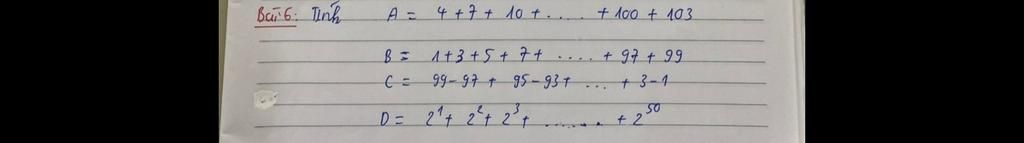 Bài 6: Tính A = 4 + 7 + 10 + ..... + 100 + 103
B = 1 + 3 + 5 + 7 + .... + 97 + 99
C = 99 - 97 + 95 - 93 + ... + 3 - 1
D = 2¹ + 2² + 2³ + ....... + 2⁵⁰